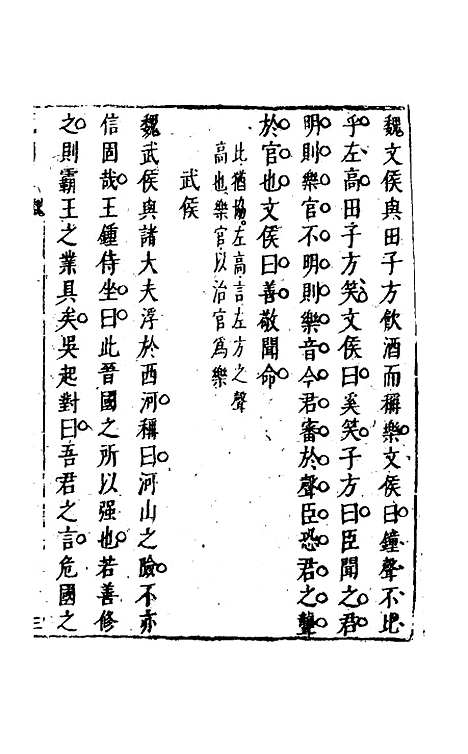 魏文侯與田子方飲酒而稱樂文侯曰鐘聲不比
乎左高田子方笑文侯曰奚笑子方曰臣聞之君
明則樂官不明則樂音今君審於聲臣恐君之聾
於官也文侯曰善敬聞命
此猶協左高言左方之聲
高也樂官以治官為樂
武侯
魏武侯與諸大夫浮於西河稱曰河山之險不亦
信固哉王鍾侍坐曰此晉國之所以强也若善修
之則霸王之業具矣吳起對曰吾君之言危國之
魏
三